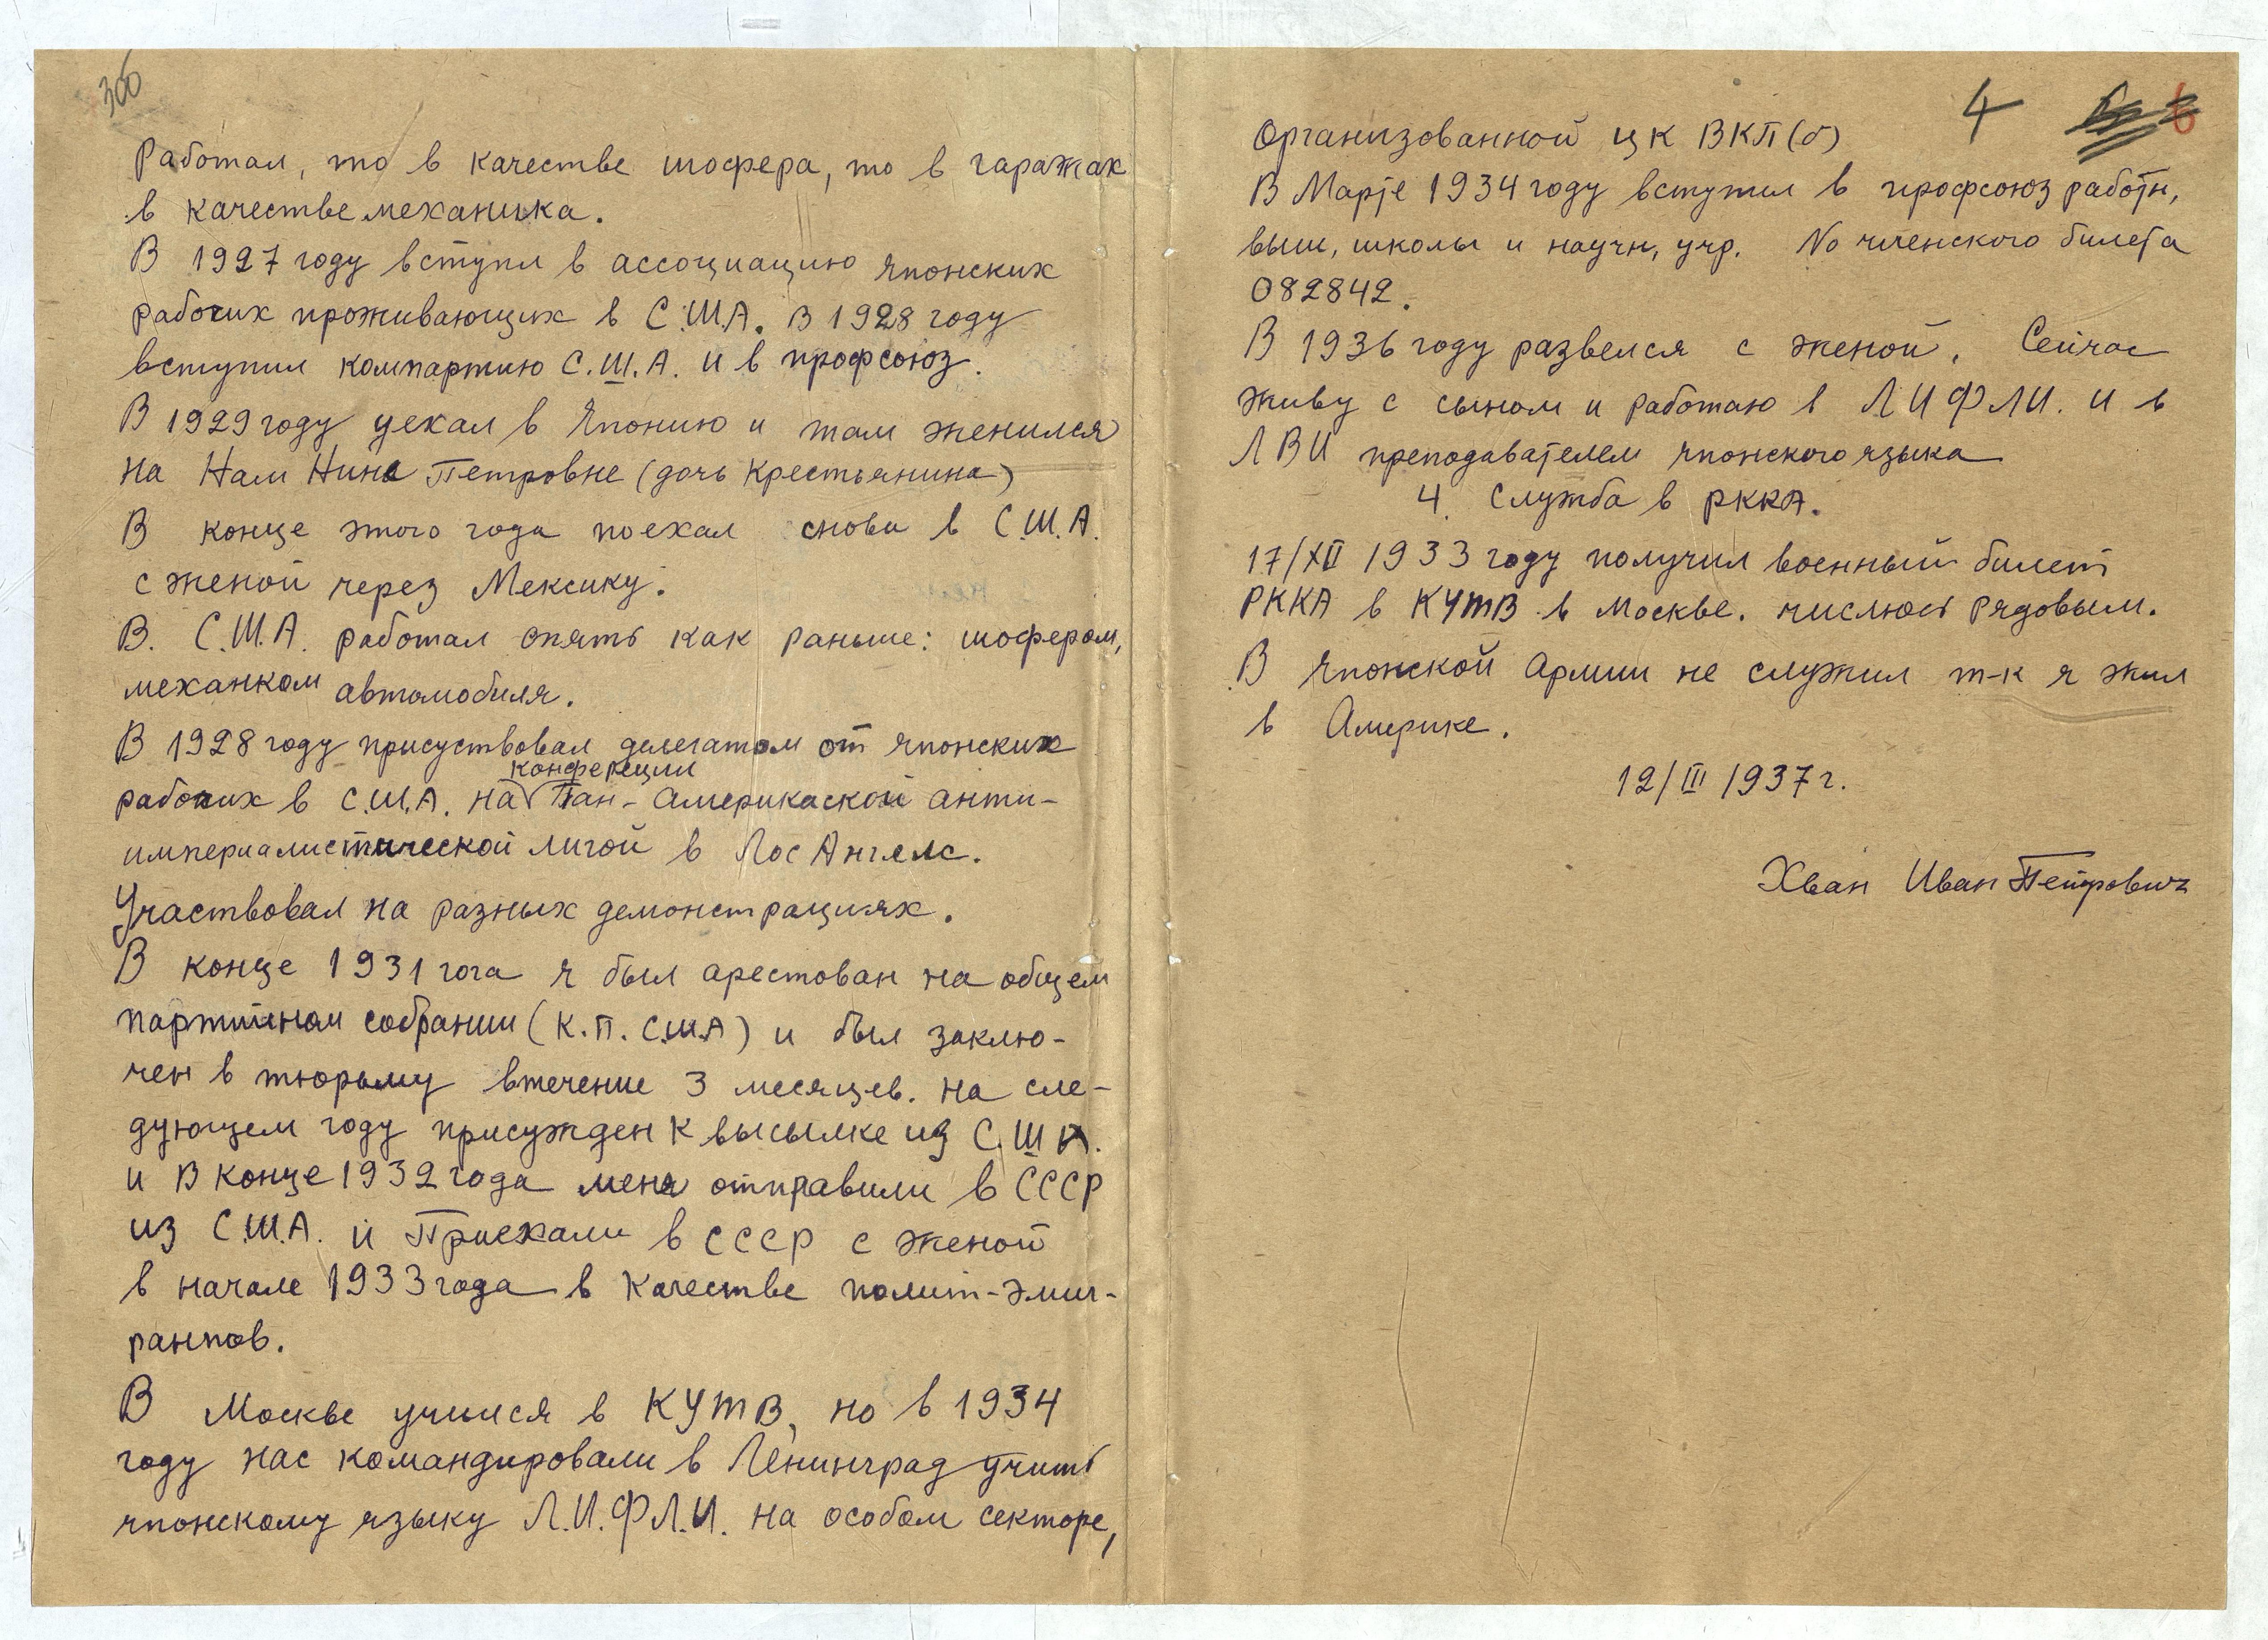 306
Работал, то в качестве шофера, то в гаражах
в качестве механика.
В 1927 году вступл в ассоциацию японских
рабочих проживающих в С.Ш.А. В 1928 году
вступил компартию С.Ш.А. и в профсоюз.
В 1929 году уехал в Японию и там женился
на Нам Нине Петровне (дочь Крестьянина)
В конце этого года поехал снова в С.Ш.А.
с женой через Мексику.
В. С.Ш.А. работал опять как раньше: шофером,
механком автомобиля.
В 1928 году присуствовал делегатом от японских
конференции
рабочих в С.Ш.А. на Пан-Америкаской анти-
империалистической лигой в Лос Ангелс.
Участвовал на разных демонстрациях.
В конце 1931 гога я был арестован на общем
партийном собрании (К.П. С.Ш.А) и был заклю-
чен в тюрьму втечение 3 месяцев. На сле-
дующем году присужден к высылке из С.Ш.А.
и В конце 1932 года меня отправили в СССР
из С.Ш.А. и Приехали в СССР с женой
в начале 1933 года в Качестве полит-эмиг-
рантов.
В Москве учился в КУТВ, но в 1934
году нас командировали в Ленинград учить
японскому языку Л.И.ФЛ.И. на особом секторе,
4 6
Организованной ЦК ВКП(б)
В Марте 1934 году вступил в профсоюз работн,
выш, школы и научн, учр. No членского билета
082842.
В 1936 году развелся с женой. Сейчас
живу с сыном и работаю в ЛИФЛИ. и в
ЛВИ преподавателем японского языка
4. Служба в РККА.
17/XII 1933 году получил военный билет
РККА в КУТВ в Москве. числюсь рядовым.
В японской Армии не служил т-к я жил
в Америке.
12/III 1937 г.
Хван Иван Петрович